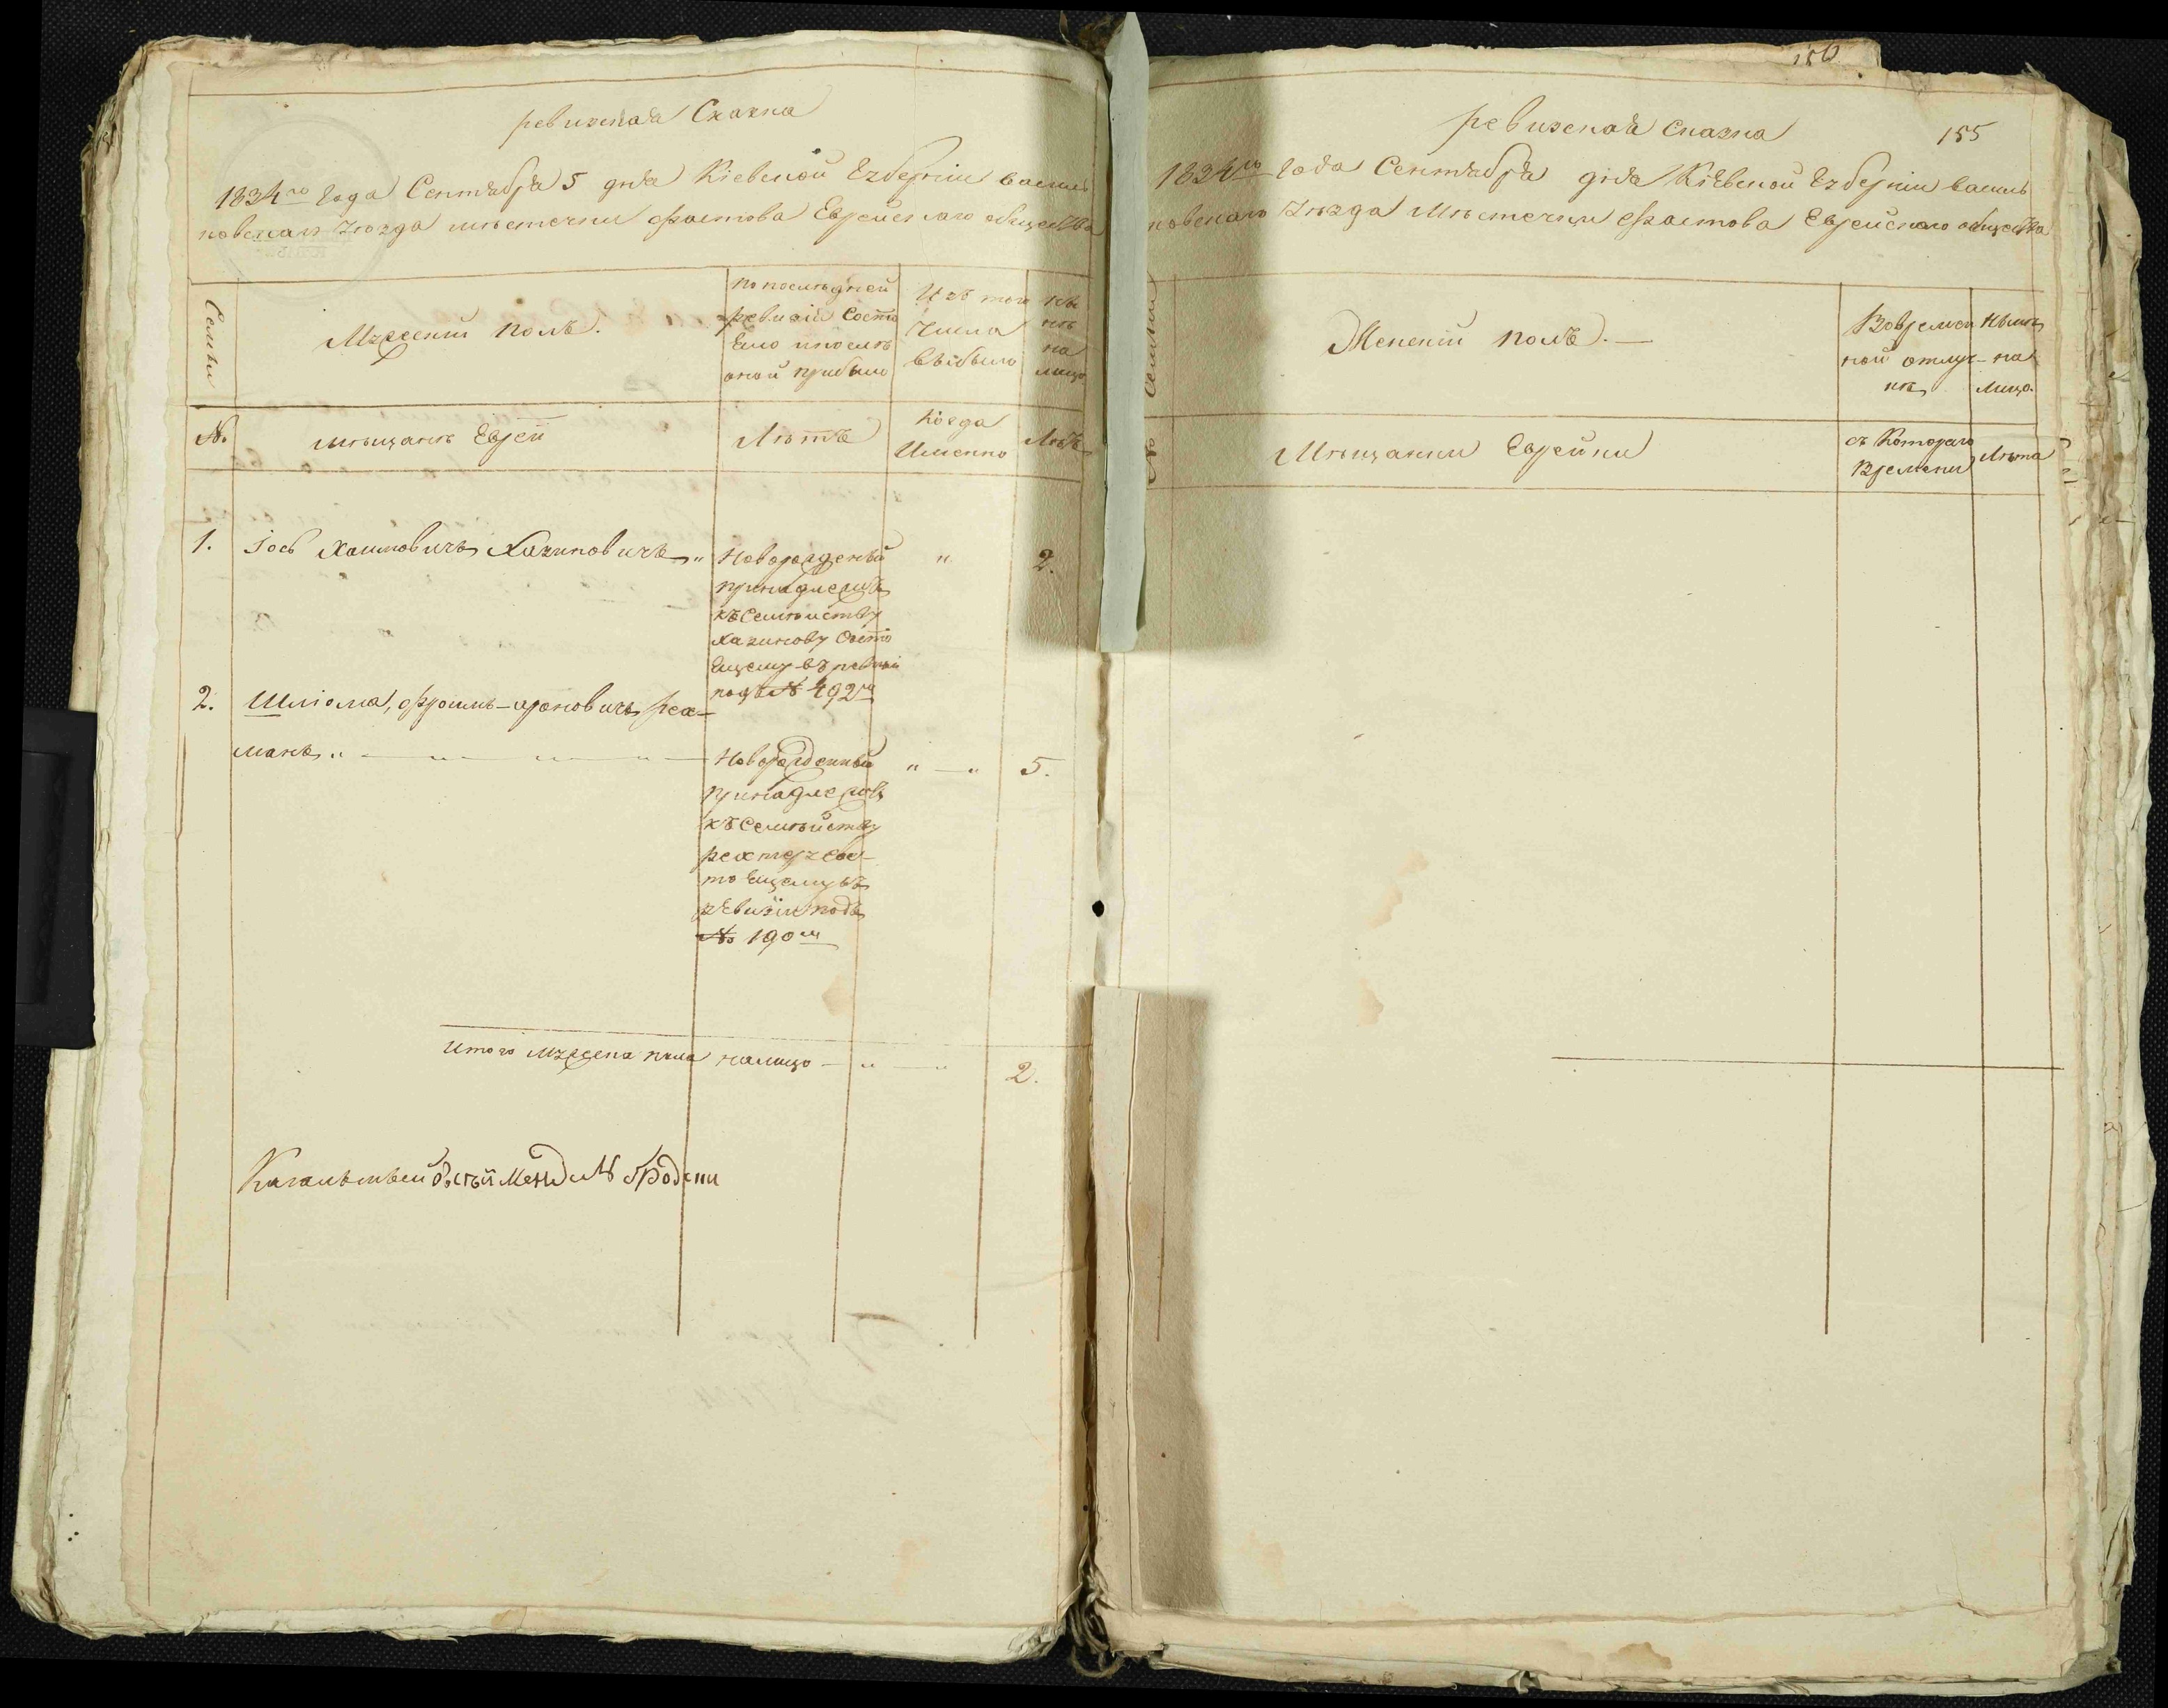 ревизская Сказка
1834го года Сентября 5 дня Кіевской Губерніи василь
ковскаго уѣзда мѣстечки Фастова Еврейскаго общества
Семьи
Мужескій полъ.
По послѣдней
ревизіи Состо
Яло ипослѣ
оной прибыло
Изъ того
числа
выбыло
ны
нѣ
на
лицо
№
мѣщанѣ Евреи
Лѣтъ
Когда
Именно
Лѣтъ
1. Іось Хаимовичъ
Новорожденый
принадлежитъ
къ Семѣйству
Состо
Ящему въ ревизіи
подъ № 492м
"
2.
2. Шліома, Фроимъ-ароновичъ рех-
манъ
Новорожденный
принадлежитъ
къ Семѣйству
сос-
тоЯщему въ
рЕвизіи подъ
№ 190м
" — "
5.
Итого мужеска пола налицо — " — "
2.
Мендель
156
155
ревизская сказка
1834го года Сентября дня КіЕвской Губерніи василь
ковскаго уѣзда Мѣстечки Фастова Еврейскаго общества
Семьи
Женскій полъ. —
Вовремен
ной отлуч-
кѣ
Нынѣ
на
лицо.
№
Мѣщанки Еврейки
съ Котораго
времени
Лѣта